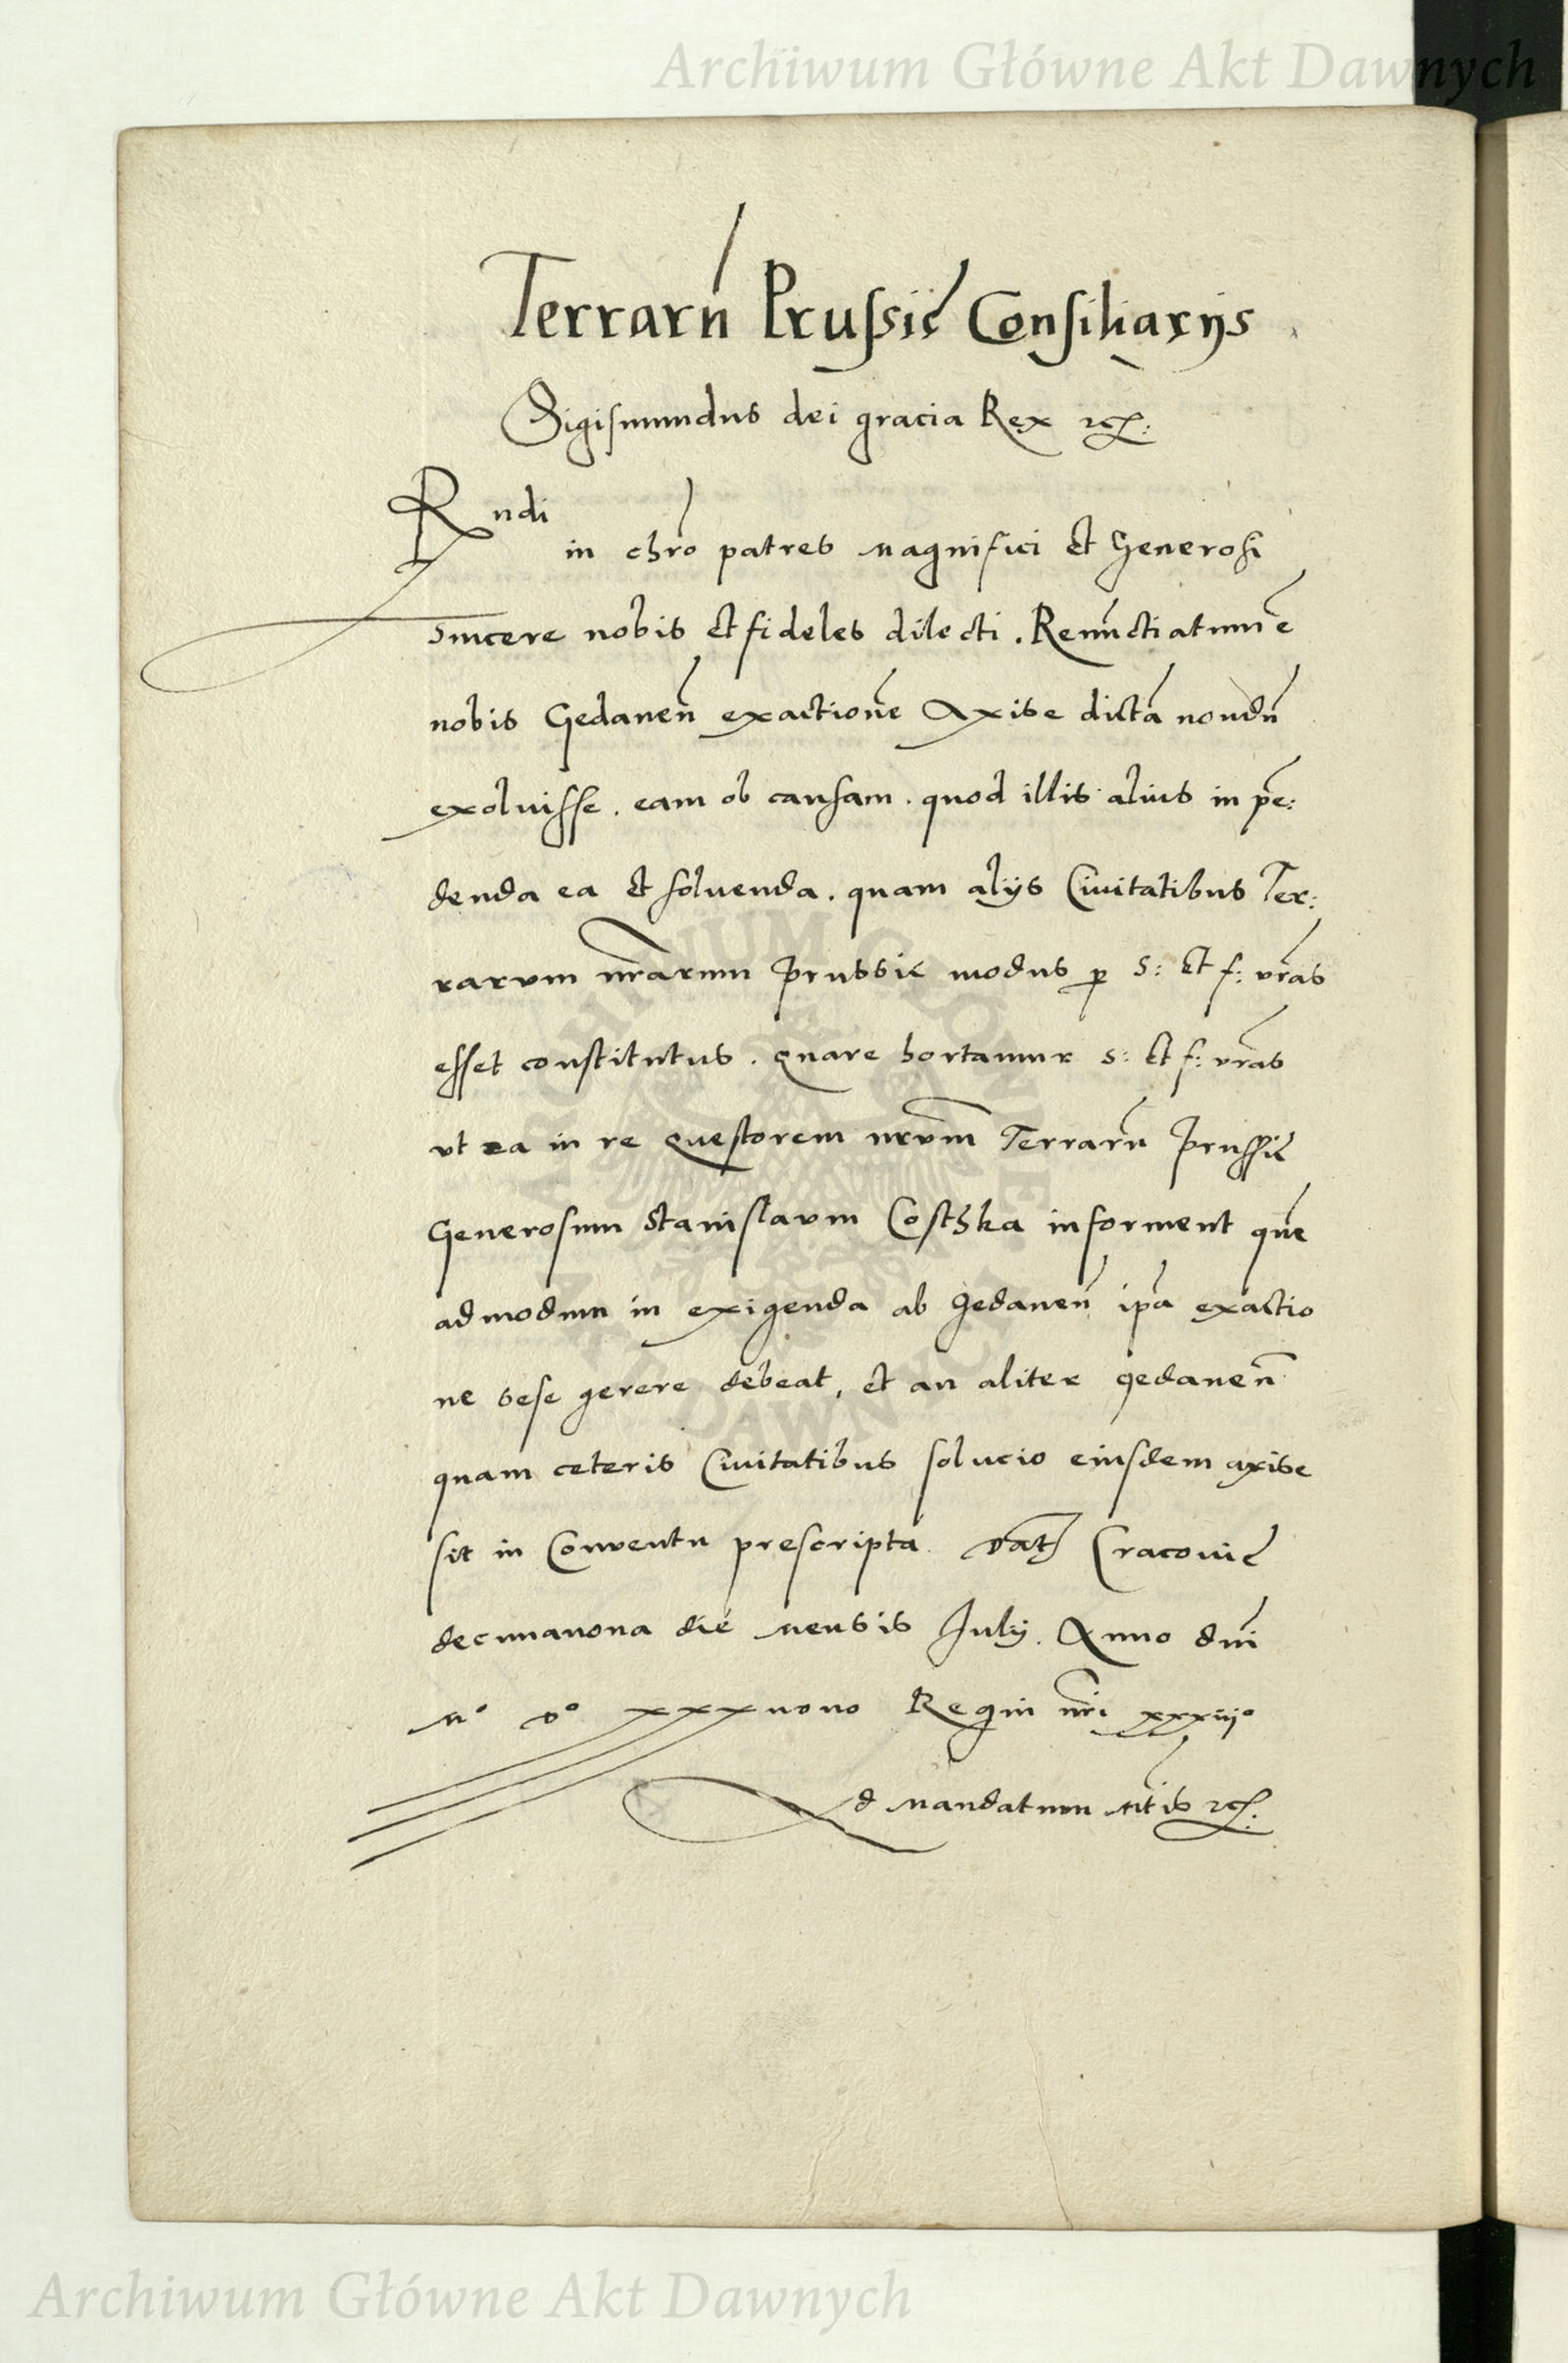 Archiwum Główne Akt Dawnych
Terrarn Prussie Consiliarijs
Sigismundus dei gracia Rex etc:
Rndi
in chro patres Magnifici et Generosi
sincere nobis et fideles dilecti. Renunctiatum e
nobis Gedanen exactione Axise dicta nondu
exoluisse. eam ob causam. quod illis alius in pe:
denda ea et soluenda. quam alijs Ciuitatibus Ter:
rarum nrarum prussie modus p s: et f: vras
esset constitutus. Quare hortamur s: et f: vras
vt ea in re Questorem nrum Terraru prussie
Generosum Stanislaum Costhka informent que
admodum in exigenda ab Gedanen ipa exactio
ne sese gerere debeat, et an aliter gedanen
quam ceteris Ciuitatibus solucio eiusdem axise
sit in Conuentu prescripta. Dat Cracouie
decimanona die Mensis Julij. Anno dni
Mo Do xxxnono Regni nri xxxiijo
Ad Mandatum Mtis etc:
ARCHIWUM GŁÓWNE AKT DAWNYCH
Archiwum Główne Akt Dawnych